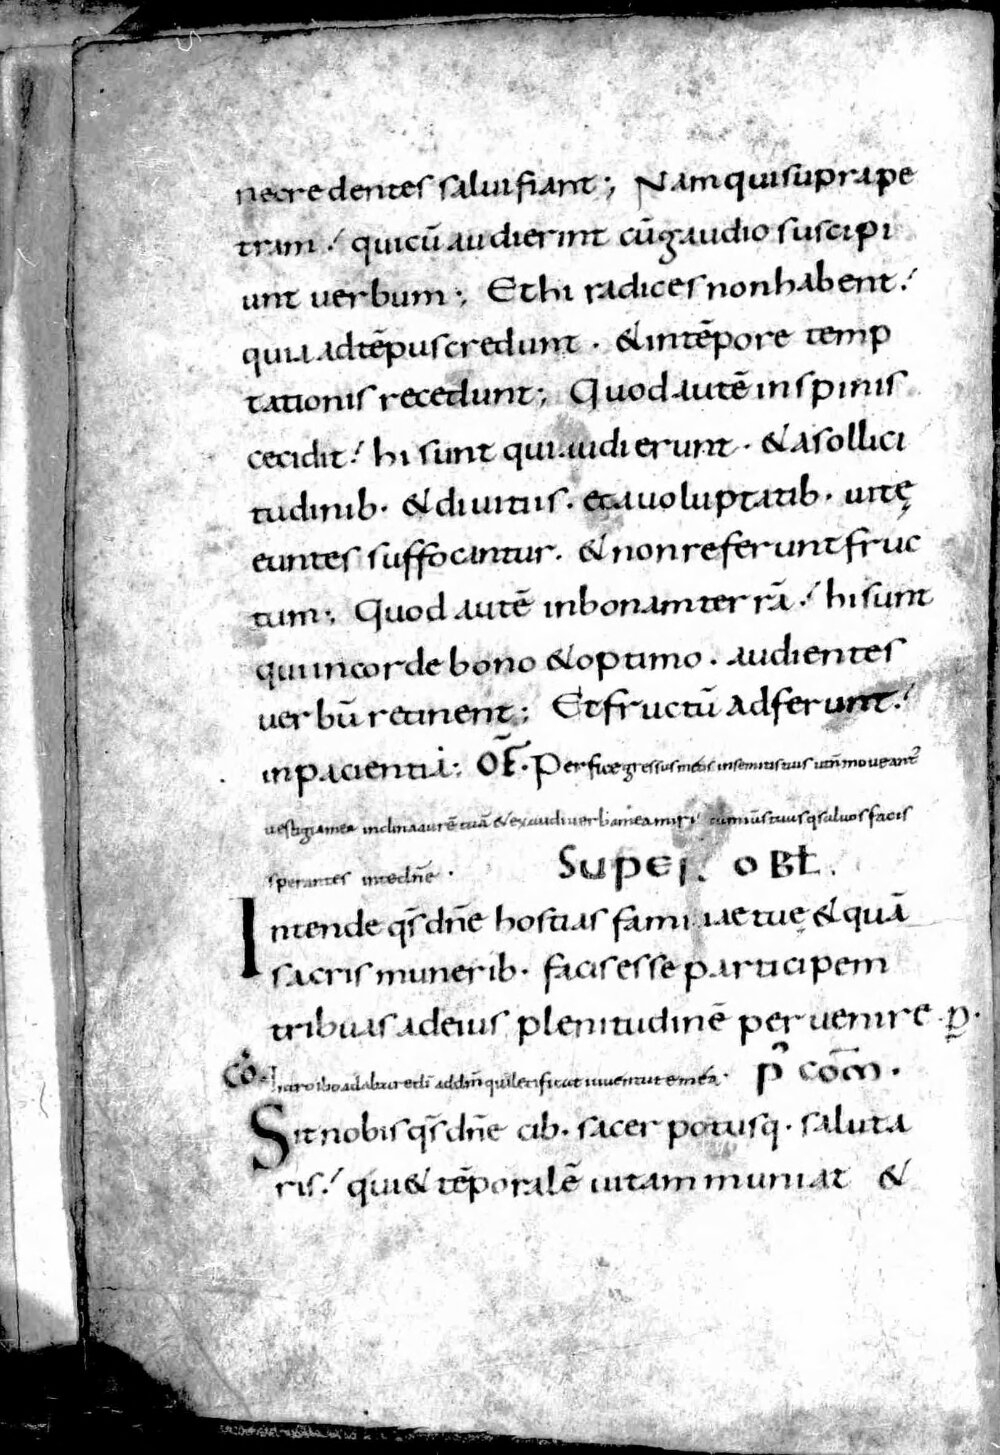 necredentes salui fiant; Nam qui supra pe
tram ! qui cū audierint cū gaudio suscipi
unt uerbum; Et hi radices non habent !
quia ad tēpus credunt · & in tēpore temp
tationis recedunt; Quod autē in spinis
cecidit ! hi sunt qui audierunt · & a sollici
tudinib· & diuitiis · et a uoluptatib· uitę
euntes suffocantur · & non referunt fruc
tum; Quod autē in bonam terrā ! hi sunt
qui in corde bono & optimo · audientes
uerbū retinent; Et fructū adferunt !
in pacientia; OF̄· Perfice gressus meos in semitis tuis ut n̄ moueant᷑
uestigia mea inclina aurē tuā & exaudi uerba mea miri tuus q saluos facis
sperantes in te dn̄e ·
Super · OBŁ ·
Intende qs̄ dn̄e hostias familiae tuę & quā
sacris munerib· facis esse participem
tribuas ad eius plenitudinē peruenire · p̲ ·
CŌ· Introibo ad altare dī ad dm̄ qui letificat iuuentutē meā · P᷒ COM̄ ·
Sit nobis qs̄ dn̄e cib· sacer potusq· saluta
ris ! qui & tēporalē uitam muniat &